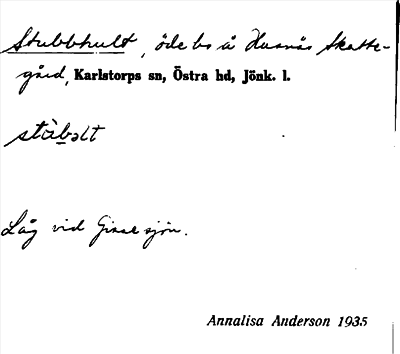 Stubbhult, öde bs å Husnäs Skatte-
gård, Karlstorps sn, Östra hd, Jönk. l.
stùbəlt
Låg vid sjön.
Annalisa Anderson 1935